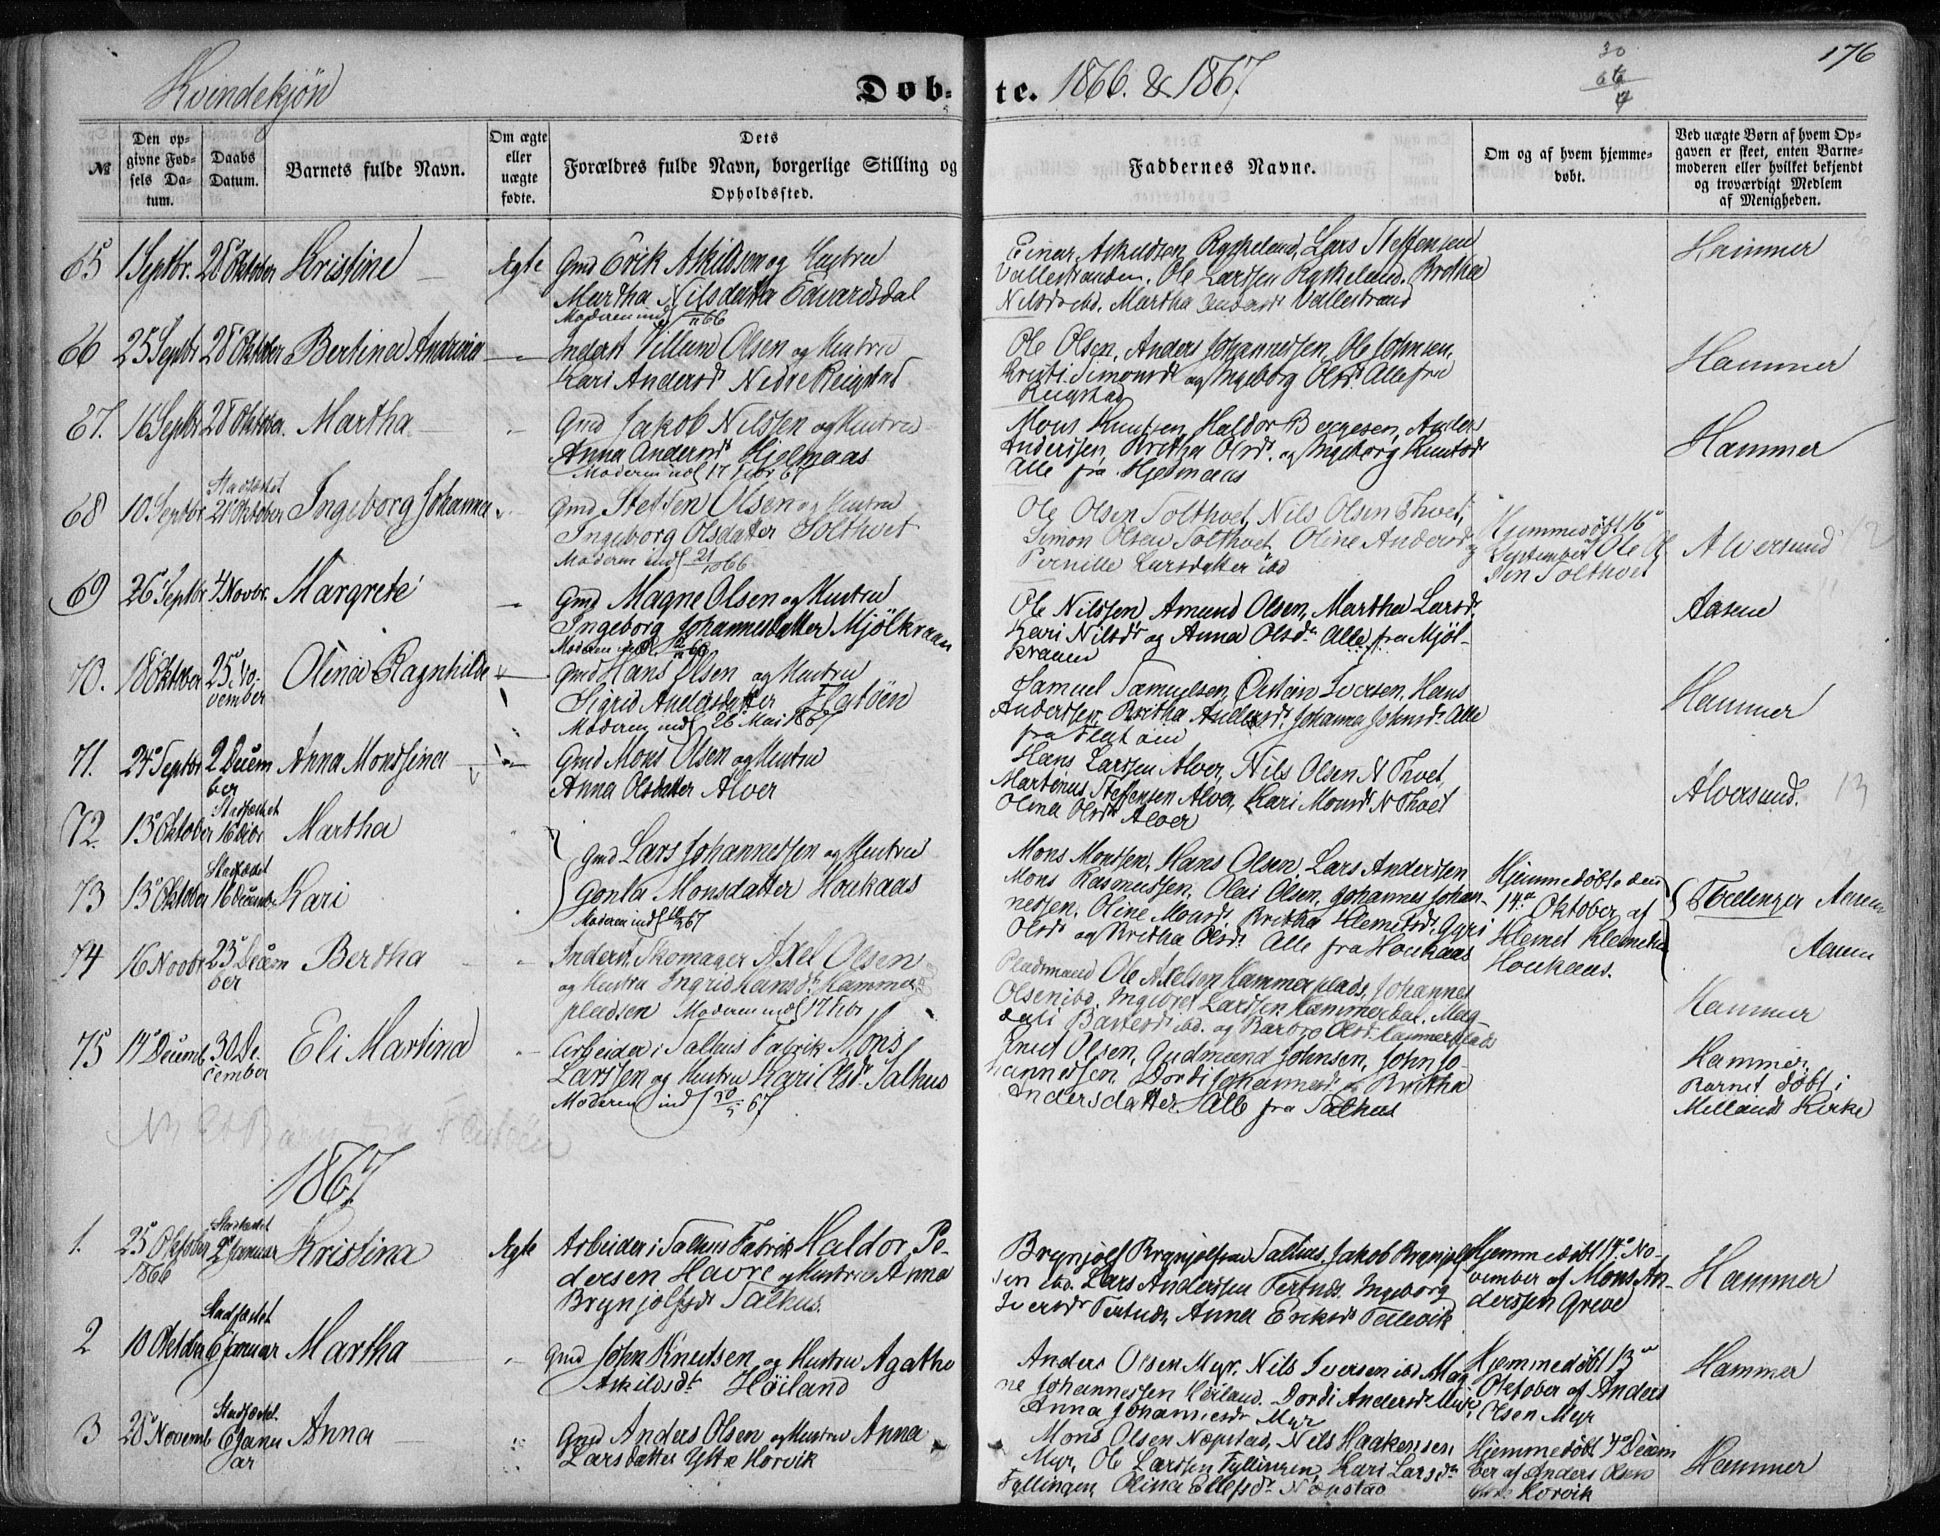 Kvindekjön
Döbte. 1866. & 1867.
30
66
176
№
Den opgivne Fødsels Datum.
Daabs Datum.
Barnets fulde Navn.
Om ægte eller uægte fødte.
Dets
Forældres fulde Navn, borgerlige Stilling og
Opholdssted.
Faddernes Navne.
Om og af hvem hjemmedøbt.
Ved uægte Børn af hvem Opgaven er skeet, enten Barnemoderen eller hvilket bekjendt og troværdigt Medlem af Menigheden.
65 1 Septbr. 28 Oktober Kristine Ægte Gmd Erik Askildsen og Hustru
Martha Nilsdatter Edvardsdal
Moderen indl 66
Einar Askildsen Rykkeland, Lars Steffensen
Vallestranden, Ole Larssen Rykkeland, Bretha
Nilsdr ibd. Martha Vallestrand
Hammer
66 25 Septbr 28 Oktober Bertina Andrina Inderst Villum Olsen og Hustru
Kari Andersdr Nedre Reigstad
Ole Olsen, Anders Johannessen, Ole Johnsen,
Kristi Simonsdr og Ingeborg Olsdr Alle fra
Reigstad
Hammer
67. 16 Septbr 28 Oktober. Martha Gmd Jakob Nilssen og Hustru
Anna Andersdr Hjelmaas
Moderen indl 17 Febr 67
Mons Knutsen, Haldor Beggesen, Anders
Anderssen, Bretha Olsdr. og Ingeborg Knutsdr
Alle fra Hjelmaas
Hammer
68 10 Septbr Stadfæstet 21 Oktober Ingeborg Johanna Gmd Steffen Olsen og Hustru
Ingeborg Olsdatter Tolthvet
Moderen indl 21/10 66
Ole Olsen Tolthvet, Nils Olsen Thvet,
Simon Olsen Tolthvet, Oline Andersdr og
Pernille Larsdatter ibd
Hjemmedöbt 16
September af Ole Ol
sen Tolthvet
Alversund
69 26 Septbr 4 Novbr. Margrete Gmd Magne Olsen og Hustru
Ingeborg Johannesdatter Mjölkraaen
Moderen indl 66
Ole Nilssen, Amund Olsen, Martha Larsdr
Kari Nilsdr og Anna Olsdr. Alle fra Mjöl-
kraaen
Aasene
70. 18 Oktober 25 November Olina Ragnhilde Gmd Hans Olsen og Hustru
Sigrid Andersdatter Flatöen
Moderen indl 26 Mai 1867
Samuel Samuelsen, Östein Iversen, Hans
Anderssen, Bretha Andersdr, Johanna Johnsdr. Alle
fra Flatöen
Hammer
71. 24 Septbr 2 December Anna Monsina Gmd Mons Olsen og Hustru
Anna Olsdatter Alver
Hans Larssen Alver, Nils Olsen N Thvet,
Martinus Steffensen Alver, Kari Monsdr N Thvet
Olina Olsdr Alver
Alversund. 13
72. 13 Oktober Stadfæstet 16 Martha
73 13 Oktober Stadfæstet 16 Decemb. Kari
Gmd Lars Johannessen og Hustru
Gonla Monsdatter Houkaas
Moderen indl 67
Mons Monssen, Hans Olsen, Lars Anderssen
Mons Rasmussen, Olai Olsen, Johannes Johan-
nessen, Oline Monsdr, Bretha Klemetsdr, Gyri
Olsdr og Bretha Olsdr. Alle fra Houkaas
Hjemmedöbt den
14 Oktober af
Klemet Klemetsen
Houkaas.
Tvillinger Aasene
Aasene
74 16 Novbr. 23 December Bertha Inderst, Skomager Axel Olsen
og Hustru Ingrid Hansdr Hammer-
pladsen Moderen indl 17 Febr
Pladsmand Ole Axelsen Hammerplads, Johannes
Olsen ibd. Ingebret Larssen Hammerdal, Mag-
dali ibd. og Barbro Olsdr Hammerplads
Hammer
75 14 Decemb. 30 December Eli Martina Arbeider i Salhus Fabrik Mons
Larssen og Hustru Kari Olsdr. Salhus
Moderen indl 30/5 67
Knut Olsen, Gudmund Johnsen, John Jo-
hannessen, Dordi Johannesdr og Bretha
Andersdatter. Alle fra Salhus
Hammer.
Barnet döbt i
Milland Kirke
1867
1. 25 Oktober 1866 Stadfæstet 2 Januar Kristina Ægte Arbeider i Salhus Fabrik Haldor Pe-
dersen Havre og Hustru Anna
Brynjolfsdr Salhus.
Brynjolf Brynjolfsen Salhus, Jakob Brynjolf-
sen ibd. Lars Anderssen Tertnes, Ingeborg
Iversdr Tertnes, Anna Eriksdr Tellevik
Hjemmedöbt 14 No-
vember af Mons An-
derssen Greve
Hammer
2 10 Oktober Stadfæstet 6 Januar Martha Gmd John Knutsen og Hustru Agatha
Askildsdr. Höiland
Anders Olsen Myr, Nils Iversen ibd, Mag-
ne Johannessen Höiland, Dordi Andersdr Myr,
Anna Johannesdr Myr
Hjemmedöbt 13
Oktober af Anders
Olsen Myr
Hammer
3 28 Novemb Stadfæstet 6 Januar Anna Gmd Anders Olsen og Hustru Anna
Larsdatter Yttre Horvik
Mons Olsen Næpstad, Nils Haakensen
Myr, Ole Larssen Fyllingen, Kari Larsdr
Fyllingen, Olina Ellefsdr Næpstad
Hjemmedöbt 4 Decem
ber af Anders Olsen
Horvik
Hammer